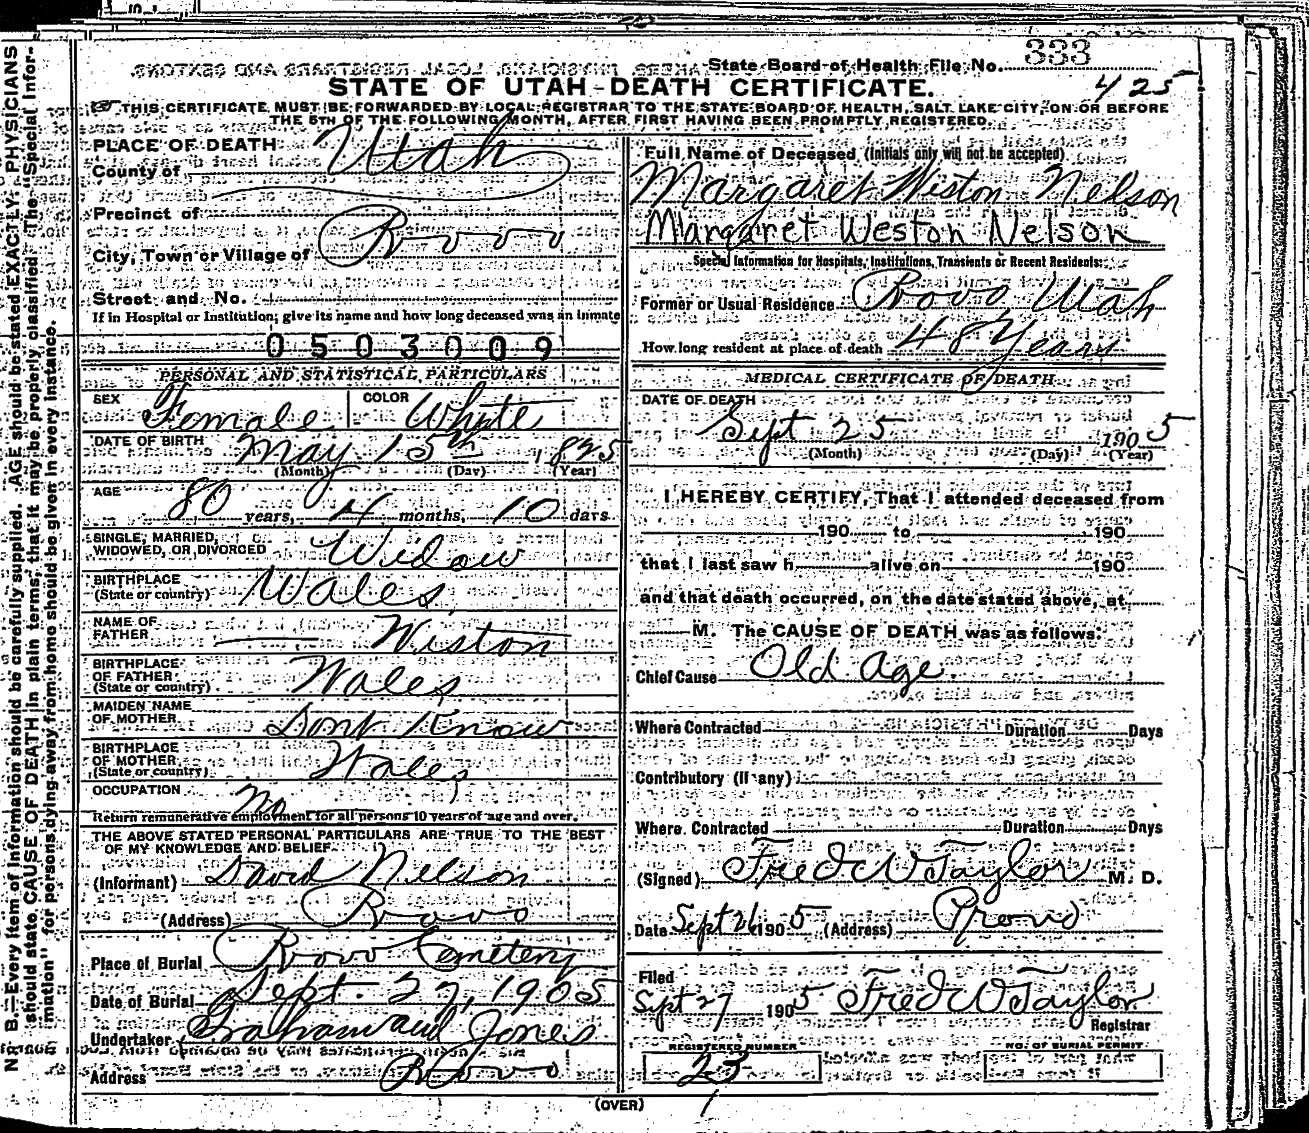 State Board of Health File No. 333
425
STATE OF UTAH - DEATH CERTIFICATE.
THIS CERTIFICATE MUST BE FORWARDED BY LOCAL REGISTRAR TO THE STATE BOARD OF HEALTH, SALT LAKE CITY, ON OR BEFORE
THE 5TH OF THE FOLLOWING MONTH, AFTER FIRST HAVING BEEN PROMPTLY REGISTERED.
N. B.—Every item of information should be carefully supplied. AGE should be stated EXACTLY. PHYSICIANS
should state CAUSE OF DEATH in plain terms, that it may be properly classified. The "Special Infor-
mation" for persons dying away from home should be given in every instance.
PLACE OF DEATH
County of Utah
Precinct of
City, Town or Village of Provo
Street and No.
If in Hospital or Institution, give its name and how long deceased was an inmate
0503009
PERSONAL AND STATISTICAL PARTICULARS
SEX Female COLOR White
DATE OF BIRTH May 15th 1825
(Month) (Day) (Year)
AGE 80 years, 4 months, 10 days
SINGLE, MARRIED,
WIDOWED, OR DIVORCED Widow
BIRTHPLACE
(State or country) Wales
NAME OF
FATHER Weston
BIRTHPLACE
OF FATHER
(State or country) Wales
MAIDEN NAME
OF MOTHER Dont Know
BIRTHPLACE
OF MOTHER
(State or country) Wales
OCCUPATION No
Return remunerative employment for all persons 10 years of age and over.
THE ABOVE STATED PERSONAL PARTICULARS ARE TRUE TO THE BEST
OF MY KNOWLEDGE AND BELIEF.
(Informant) David Nelson
(Address) Provo
Place of Burial Provo Cemetery
Date of Burial Sept. 27, 1905
Undertaker Graham and Jones
Address Provo
Full Name of Deceased (Initials only will not be accepted)
Margaret Weston Nelson
Margaret Weston Nelson
Special Information for Hospitals, Institutions, Transients or Recent Residents:
Former or Usual Residence Provo Utah
How long resident at place of death 48 Years
MEDICAL CERTIFICATE OF DEATH
DATE OF DEATH
Sept 25 1905
(Month) (Day) (Year)
I HEREBY CERTIFY, That I attended deceased from
190 to 190
that I last saw h alive on 190
and that death occurred, on the date stated above, at
M. The CAUSE OF DEATH was as follows:
Chief Cause Old Age.
Where Contracted Duration Days
Contributory (If any)
Where Contracted Duration Days
(Signed) Fred W Taylor M. D.
Date Sept 26 1905 (Address) Provo
Filed
Sept 27 1905 Fred W Taylor
Registrar
REGISTERED NUMBER NO. OF BURIAL PERMIT
23
(OVER)